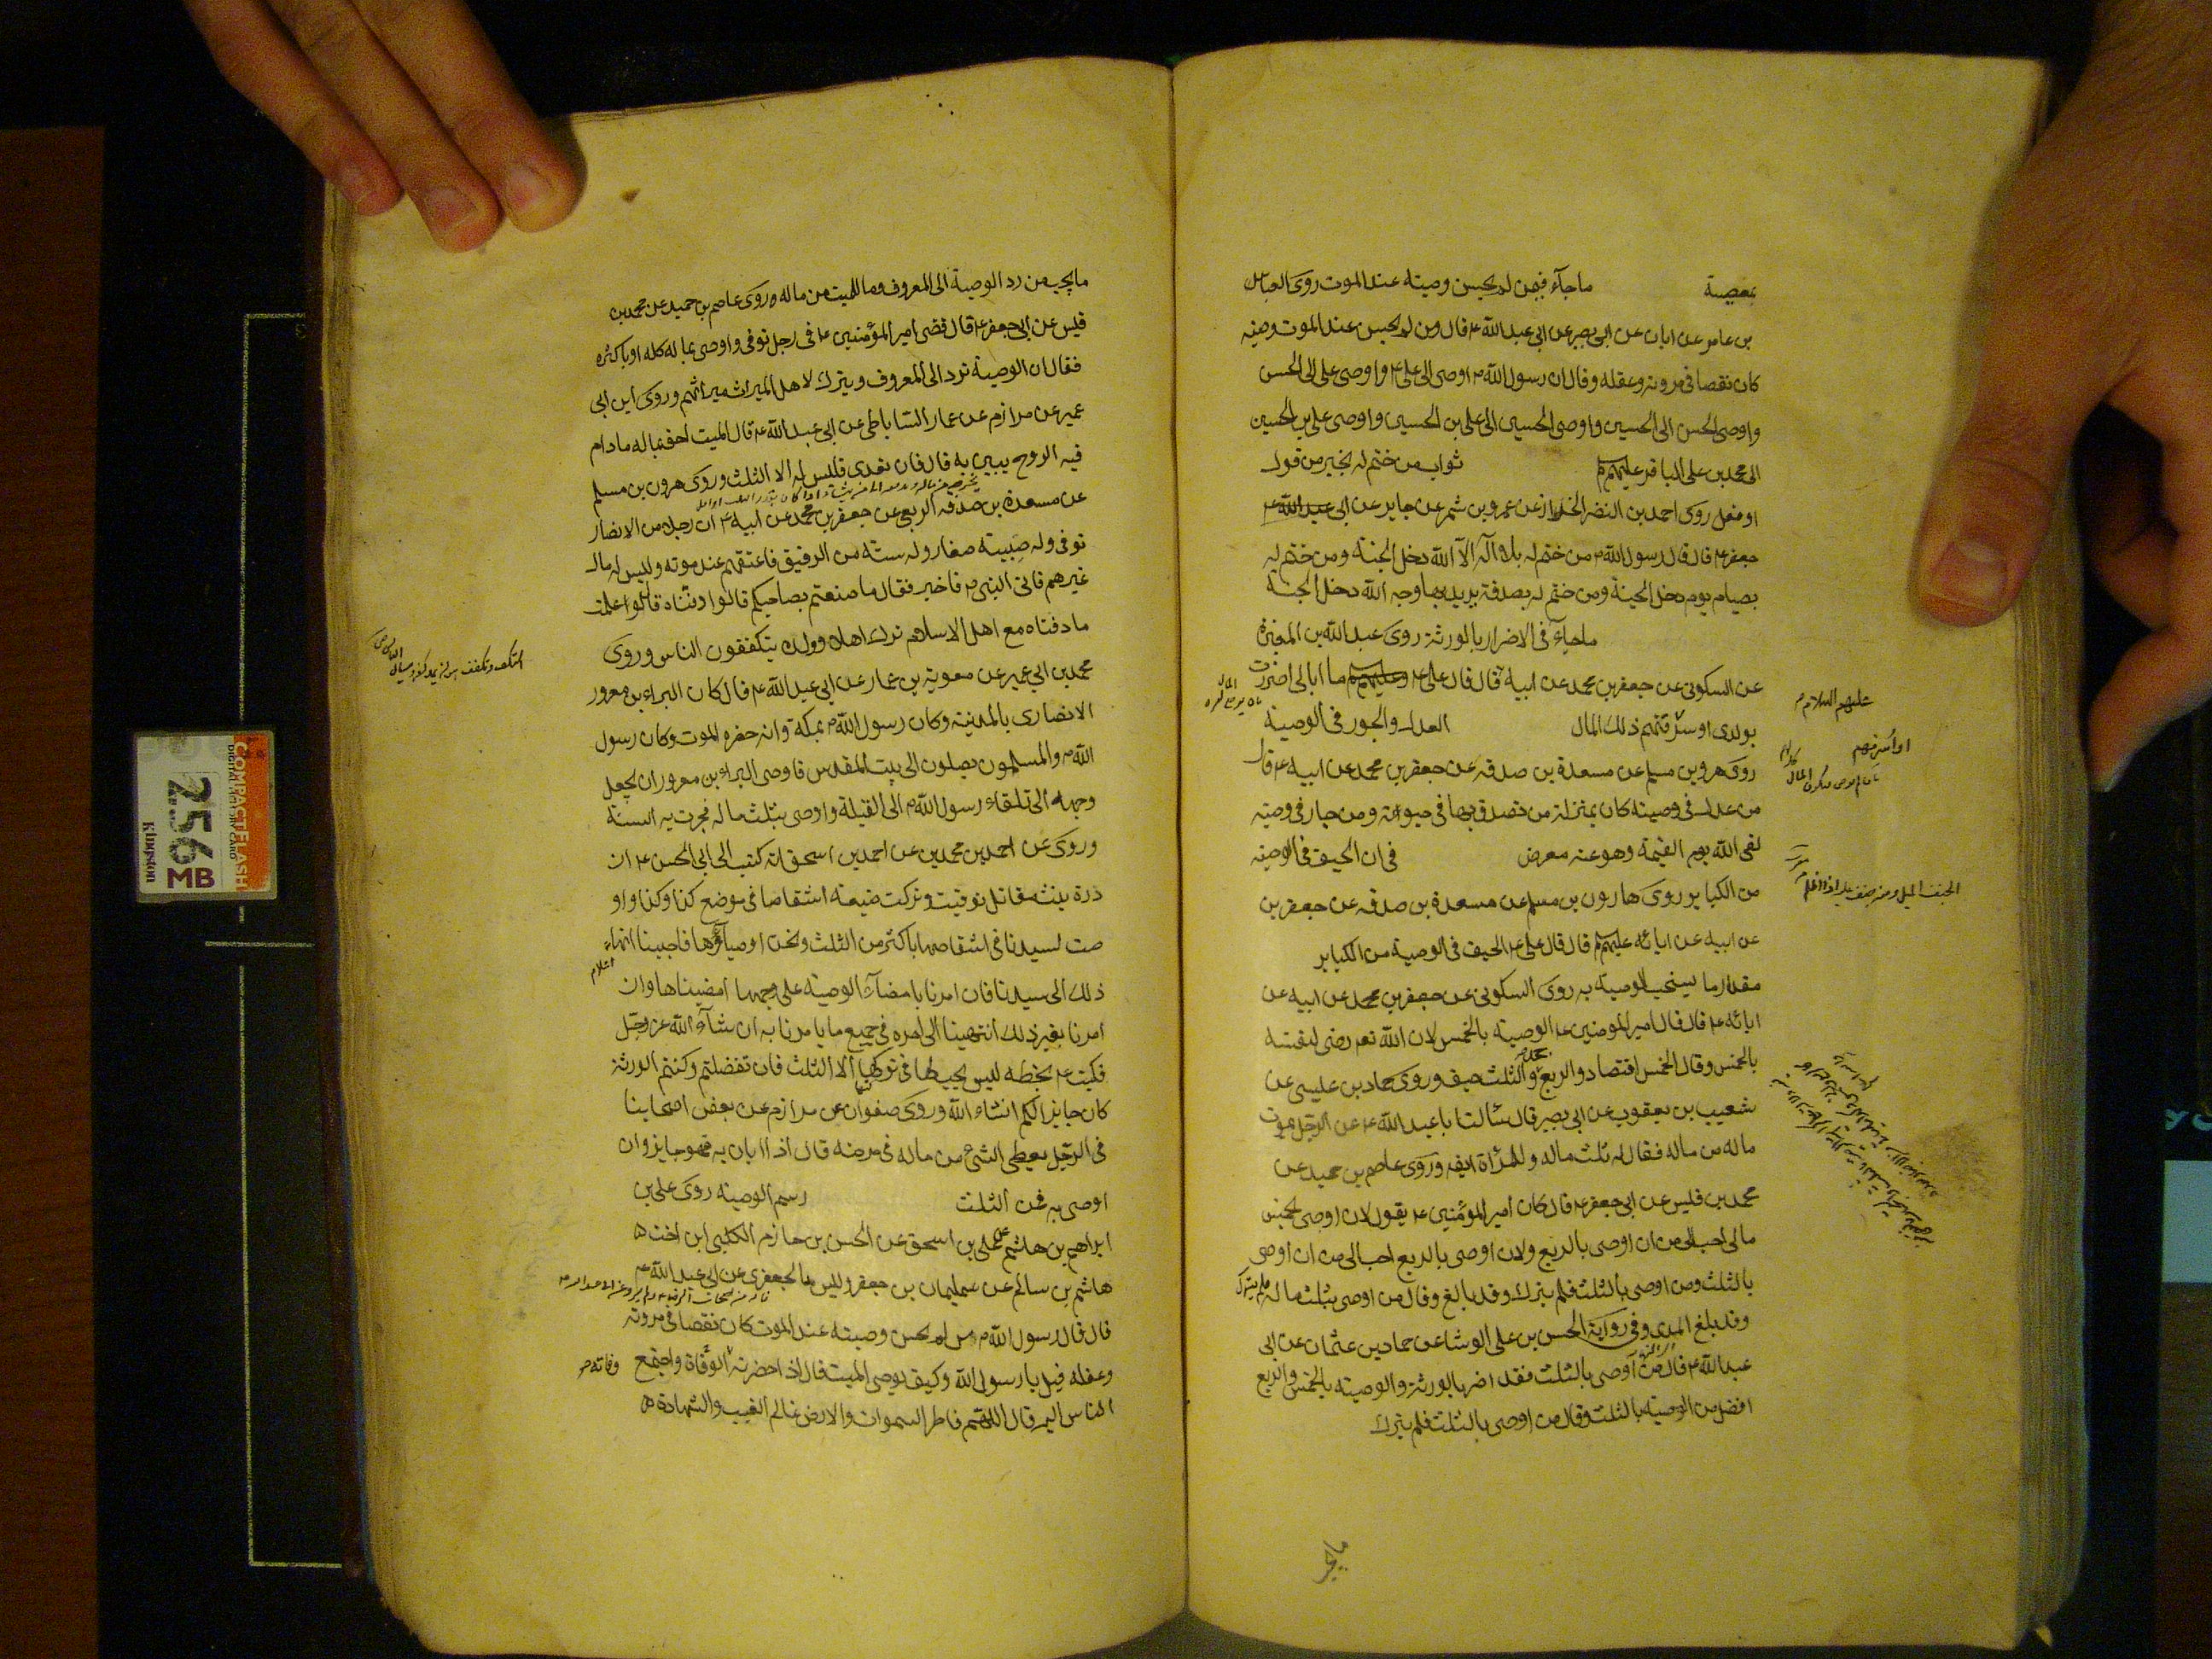 بمعصية ما جآء فيمن لم يحسن وصيته عند الموت روى العباس
بن عامر عن ابان عن ابى بصير عن ابى عبد الله ع قال من لم يحسن عند الموت وصيته
كان نقصا فى مروته وعقله وقال ان رسول الله ص اوصى الى على ع واوصى على الى الحسن
واوصى الحسن الى الحسين واوصى الحسين الى على بن الحسين واوصى على بن الحسين
الى محمد بن على الباقر عليهم ثواب من ختم له بخير من قول
او فعل روى احمد بن النضر الخزاز عن عمرو بن شمر عن جابر عن ابى عبد الله ع
جعفر ع قال قال رسول الله ص من ختم له بلا اله الا الله دخل الجنة ومن ختم له
بصيام يوم دخل الجنة ومن ختم له بصدقة يريد بها وجه الله دخل الجنة
ما جآء فى الاضرار بالورثة روى عبد الله بن المغيرة
عن السكونى عن جعفر بن محمد عن ابيه قال قال على ع ما ابالى اضررت
عليهم السلام
بولدى او سرقتهم ذلك المال العدل والجور فى الوصية
روى هرون بن مسلم عن مسعدة بن صدقه عن جعفر بن محمد عن ابيه ع قال
من عدل فى وصيته كان بمنزلة من تصدق بها فى حيوته ومن جار فى وصيته
لقى الله يوم القيمة وهو عنه معرض فى ان الحيف فى الوصيه
من الكباير روى هارون بن مسلم عن مسعدة بن صدقه عن جعفر بن
عن ابيه عن ابائه عليهم قال قال على ع الحيف فى الوصية من الكباير
مقدار ما يستحب الوصية به روى السكونى عن جعفر بن محمد عن ابيه عن
ابائه ع قال قال امير المومنين ع الوصية بالخمس لان الله رضى لنفسه
بالخمس وقال الخمس اقتصاد والربع جهد والثلث حيف وروى حماد بن عيسى عن
شعيب بن يعقوب عن ابى بصير قال سالت ابا عبد الله ع عن الرجل يموت
ماله من ماله فقال له ثلث ماله وللمرأة ايضا وروى عاصم بن حميد عن
محمد بن قيس عن ابى جعفر ع قال كان امير المؤمنين ع يقول لان اوصى بخمس
مالى احب الى من ان اوصى بالربع ولان اوصى بالربع احب الى من ان اوصى
بالثلث ومن اوصى بالثلث فلم يترك وقد بالغ وقال من اوصى بثلث ماله فلم يترك
وقد بلغ المدى وفى رواية الحسن بن على الوشا عن حماد بن عثمان عن ابى
عبد الله ع قال من اوصى بالثلث فقد اضر بالورثة والوصيه بالخمس والربع
افضل من الوصية بالثلث وقال من اوصى بالثلث فلم يترك
ما يجب من رد الوصية الى المعروف وما للميت من ماله وروى عاصم بن حميد عن محمد بن
قيس عن ابى جعفر ع قال قضى امير المؤمنين ع فى رجل توفى واوصى بماله كله او باكثره
فقال ان الوصية ترد الى المعروف ويترك لاهل الميراث ميراثهم وروى ابن ابى
عمير عن مرازم عن عمار الساباطى عن ابى عبد الله ع قال الميت احق بماله ما دام
فيه الروح يبين به قال فان تعدى فليس له الا الثلث وروى هرون بن مسلم
عن مسعدة بن صدقه الربعى عن جعفر بن محمد عن ابيه ع ان رجلا من الانصار
توفى وله صبية صغار وله ستة من الرقيق فاعتقهم عند موته وليس له مال
غيرهم فاتى النبى ص فاخبر فقال ما صنعتم بصاحبكم قالوا دفناه قال لو اعلمت
ما دفناه مع اهل الاسلام ترك اهله وولده يتكففون الناس وروى
محمد بن ابى عمير عن معوية بن عمار عن ابى عبد الله ع قال كان البراء بن معرور
الانصارى بالمدينة وكان رسول الله ص بمكة وانه حضره الموت وكان رسول
الله ص والمسلمون يصلون الى بيت المقدس فاوصى البراء بن معرور ان يجعل
وجهه الى تلقاء رسول الله ص الى القبلة واوصى بثلث ماله فجرت به السنة
وروى عن احمد بن محمد بن عن احمد بن اسحق انه كتب الى ابى الحسن ع ان
درة بنت مقاتل توفيت وتركت ضيعة اشقاصا فى موضع كذا وكذا واو
صت لسيدنا فى اشقاصها باكثر من الثلث ونحن اوصياؤها فاحببنا انهاء
ذلك الى سيدنا فان امرنا بامضاء الوصية على وجهها امضيناها وان
امرنا بغير ذلك انتهينا الى امره فى جميع ما يامرنا به ان شآء الله عز وجل
فكتب ع بخطه ليس يجب لها فى تركتها الا الثلث فان تفضلتم وكنتم الورثة
كان جايزا لكم انشاء الله وروى صفوان عن مرازم عن بعض اصحابنا
فى الرجل يعطى الشىء من ماله فى مرضه قال اذا ابان به فهو جايز وان
اوصى به فمن الثلث رسم الوصية روى على بن
ابراهيم بن هاشم عن على بن اسحق عن الحسن بن حازم الكلبى ابن اخت
هاشم بن سالم عن سليمان بن جعفر وليس بالجعفرى عن ابى عبد الله ع
قال قال رسول الله ص من لم يحسن وصيته عند الموت كان نقصا فى مروته
وعقله قيل يا رسول الله وكيف يوصى الميت قال اذا حضرته الوفاة واجتمع
الناس اليه قال اللهم فاطر السموات والارض عالم الغيب والشهادة
COMPACT FLASH
256
MB
Kingston